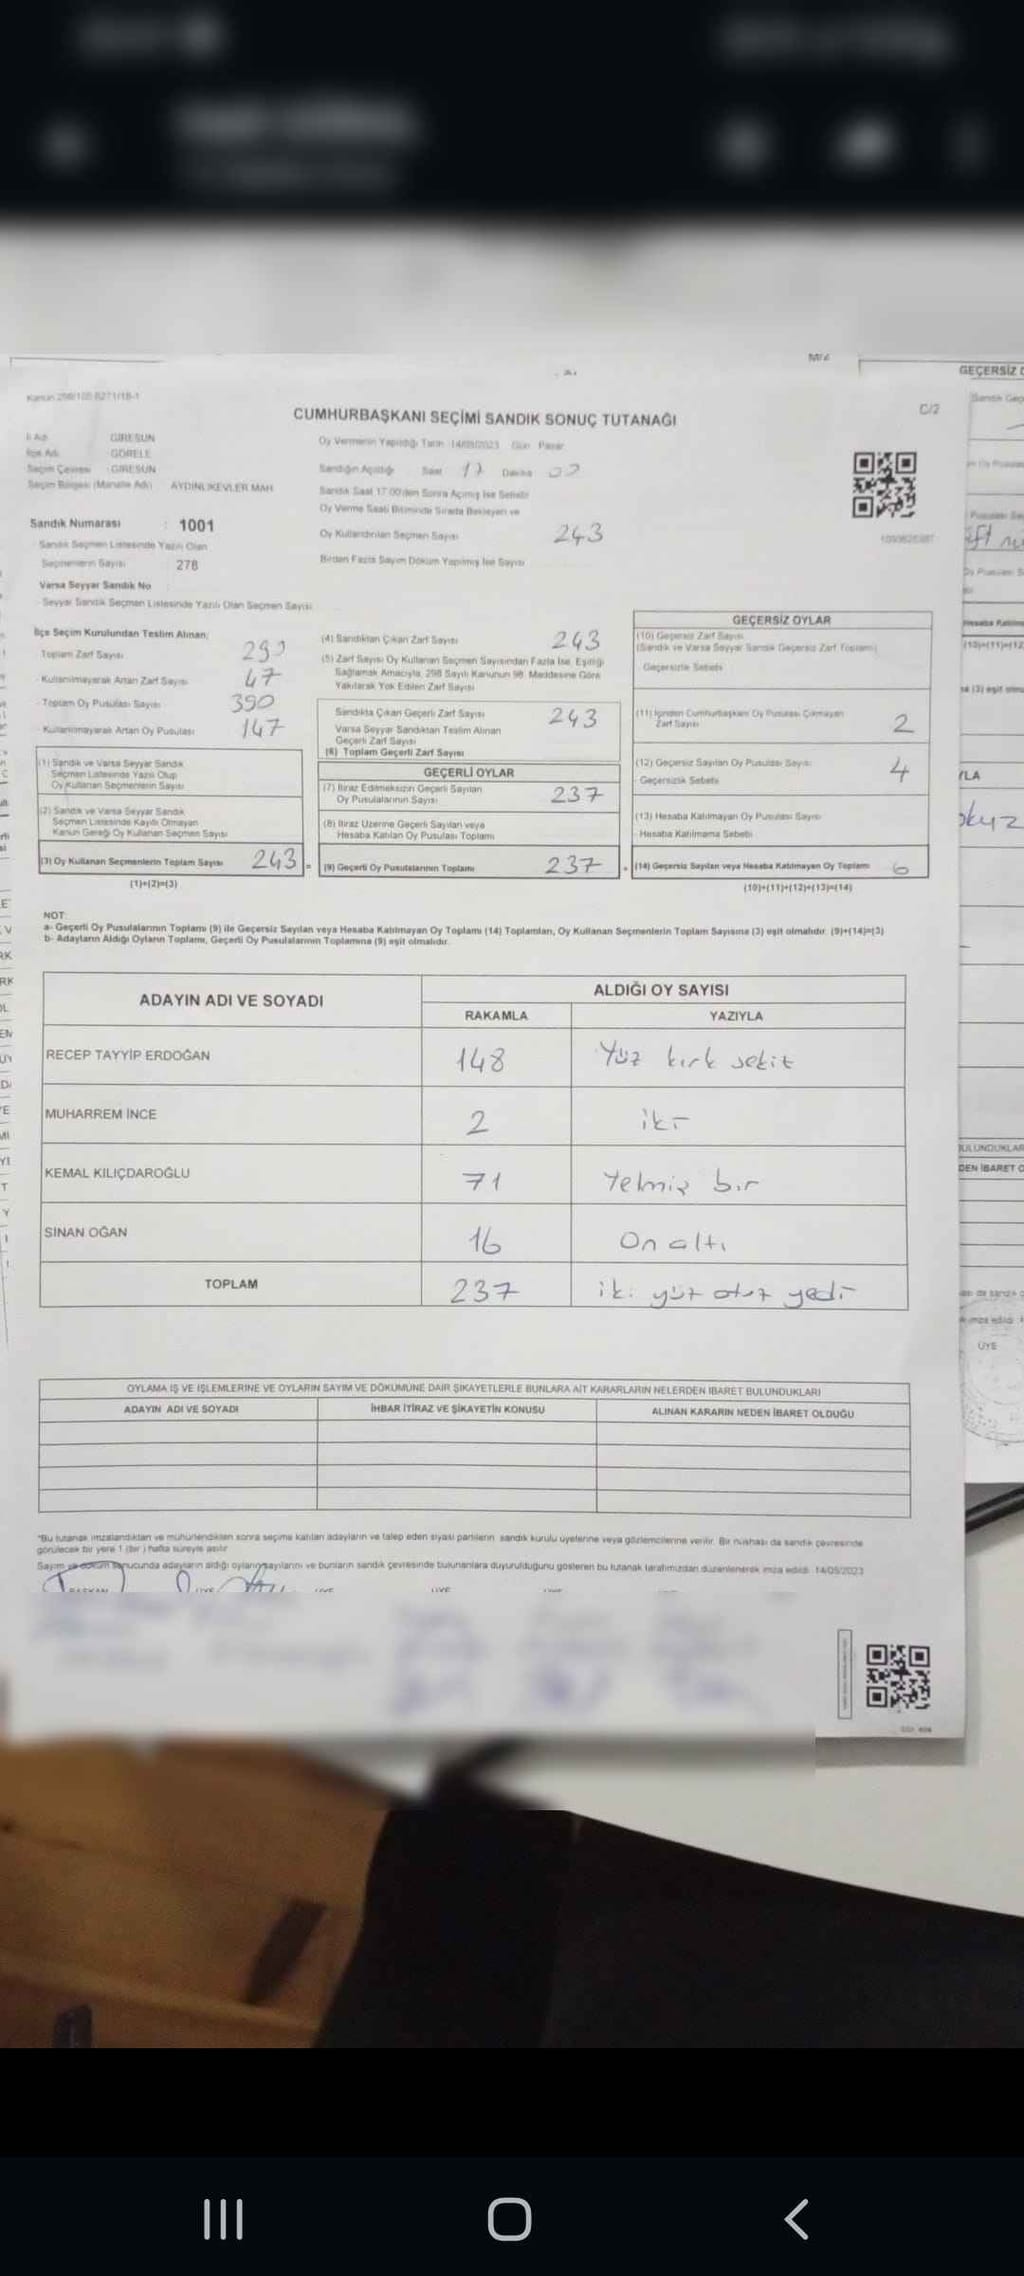 M/4
Kanun 298/105 6271/18-1
CUMHURBAŞKANI SEÇİMİ SANDIK SONUÇ TUTANAĞI
C/2
İl Adı GİRESUN
İlçe Adı GÖRELE
Seçim Çevresi GİRESUN
Seçim Bölgesi (Mahalle Adı) AYDINLIKEVLER MAH
Sandık Numarası : 1001
Sandık Seçmen Listesinde Yazılı Olan
Seçmenlerin Sayısı 278
Varsa Seyyar Sandık No
Seyyar Sandık Seçmen Listesinde Yazılı Olan Seçmen Sayısı
Oy Vermenin Yapıldığı Tarih 14/05/2023 Gün Pazar
Sandığın Açıldığı Saat 17 Dakika 00
Sandık Saat 17:00'den Sonra Açılmış İse Sebebi
Oy Verme Saati Bitiminde Sırada Bekleyen ve
Oy Kullandırılan Seçmen Sayısı 243
Birden Fazla Sayım Döküm Yapılmış İse Sayısı
İlçe Seçim Kurulundan Teslim Alınan;
Toplam Zarf Sayısı
Kullanılmayarak Artan Zarf Sayısı 47
Toplam Oy Pusulası Sayısı 390
Kullanılmayarak Artan Oy Pusulası 147
(1) Sandık ve Varsa Seyyar Sandık
Seçmen Listesinde Yazılı Olup
Oy Kullanan Seçmenlerin Sayısı
(2) Sandık ve Varsa Seyyar Sandık
Seçmen Listesinde Kaydı Olmayan
Kanun Gereği Oy Kullanan Seçmen Sayısı
(3) Oy Kullanan Seçmenlerin Toplam Sayısı 243 =
(1)+(2)=(3)
(4) Sandıktan Çıkan Zarf Sayısı 243
(5) Zarf Sayısı Oy Kullanan Seçmen Sayısından Fazla İse, Eşitliği
Sağlamak Amacıyla, 298 Sayılı Kanunun 98. Maddesine Göre
Yakılarak Yok Edilen Zarf Sayısı
Sandıkta Çıkan Geçerli Zarf Sayısı 243
Varsa Seyyar Sandıktan Teslim Alınan
Geçerli Zarf Sayısı
(6) Toplam Geçerli Zarf Sayısı
GEÇERLİ OYLAR
(7) İtiraz Edilmeksizin Geçerli Sayılan
Oy Pusulalarının Sayısı 237
(8) İtiraz Üzerine Geçerli Sayılan veya
Hesaba Katılan Oy Pusulası Toplamı
(9) Geçerli Oy Pusulalarının Toplamı 237 +
GEÇERSİZ OYLAR
(10) Geçersiz Zarf Sayısı
(Sandık ve Varsa Seyyar Sandık Geçersiz Zarf Toplamı)
Geçersizlik Sebebi
(11) İçinden Cumhurbaşkanı Oy Pusulası Çıkmayan
Zarf Sayısı 2
(12) Geçersiz Sayılan Oy Pusulası Sayısı 4
Geçersizlik Sebebi
(13) Hesaba Katılmayan Oy Pusulası Sayısı
Hesaba Katılmama Sebebi
(14) Geçersiz Sayılan veya Hesaba Katılmayan Oy Toplamı 6
(10)+(11)+(12)+(13)=(14)
NOT:
a- Geçerli Oy Pusulalarının Toplamı (9) ile Geçersiz Sayılan veya Hesaba Katılmayan Oy Toplamı (14) Toplamları, Oy Kullanan Seçmenlerin Toplam Sayısına (3) eşit olmalıdır. (9)+(14)=(3)
b- Adayların Aldığı Oyların Toplamı, Geçerli Oy Pusulalarının Toplamına (9) eşit olmalıdır.
ADAYIN ADI VE SOYADI
ALDIĞI OY SAYISI
RAKAMLA YAZIYLA
RECEP TAYYİP ERDOĞAN 148 Yüz kırk sekiz
MUHARREM İNCE 2 iki
KEMAL KILIÇDAROĞLU 71 Yetmiş bir
SİNAN OĞAN 16 On altı
TOPLAM 237 iki yüz otuz yedi
OYLAMA İŞ VE İŞLEMLERİNE VE OYLARIN SAYIM VE DÖKÜMÜNE DAİR ŞİKAYETLERLE BUNLARA AİT KARARLARIN NELERDEN İBARET BULUNDUKLARI
ADAYIN ADI VE SOYADI İHBAR İTİRAZ VE ŞİKAYETİN KONUSU ALINAN KARARIN NEDEN İBARET OLDUĞU
*Bu tutanak imzalandıktan ve mühürlendikten sonra seçime katılan adayların ve talep eden siyasi partilerin sandık kurulu üyelerine veya gözlemcilerine verilir. Bir nüshası da sandık çevresinde
görülecek bir yere 1 (bir) hafta süreyle asılır
Sayım ve döküm sonucunda adayların aldığı oyların sayılarını ve bunların sandık çevresinde bulunanlara duyurulduğunu gösteren bu tutanak tarafımızdan düzenlenerek imza edildi. 14/05/2023
BAŞKAN ÜYE ÜYE ÜYE
GEÇERSİZ
ÜYE